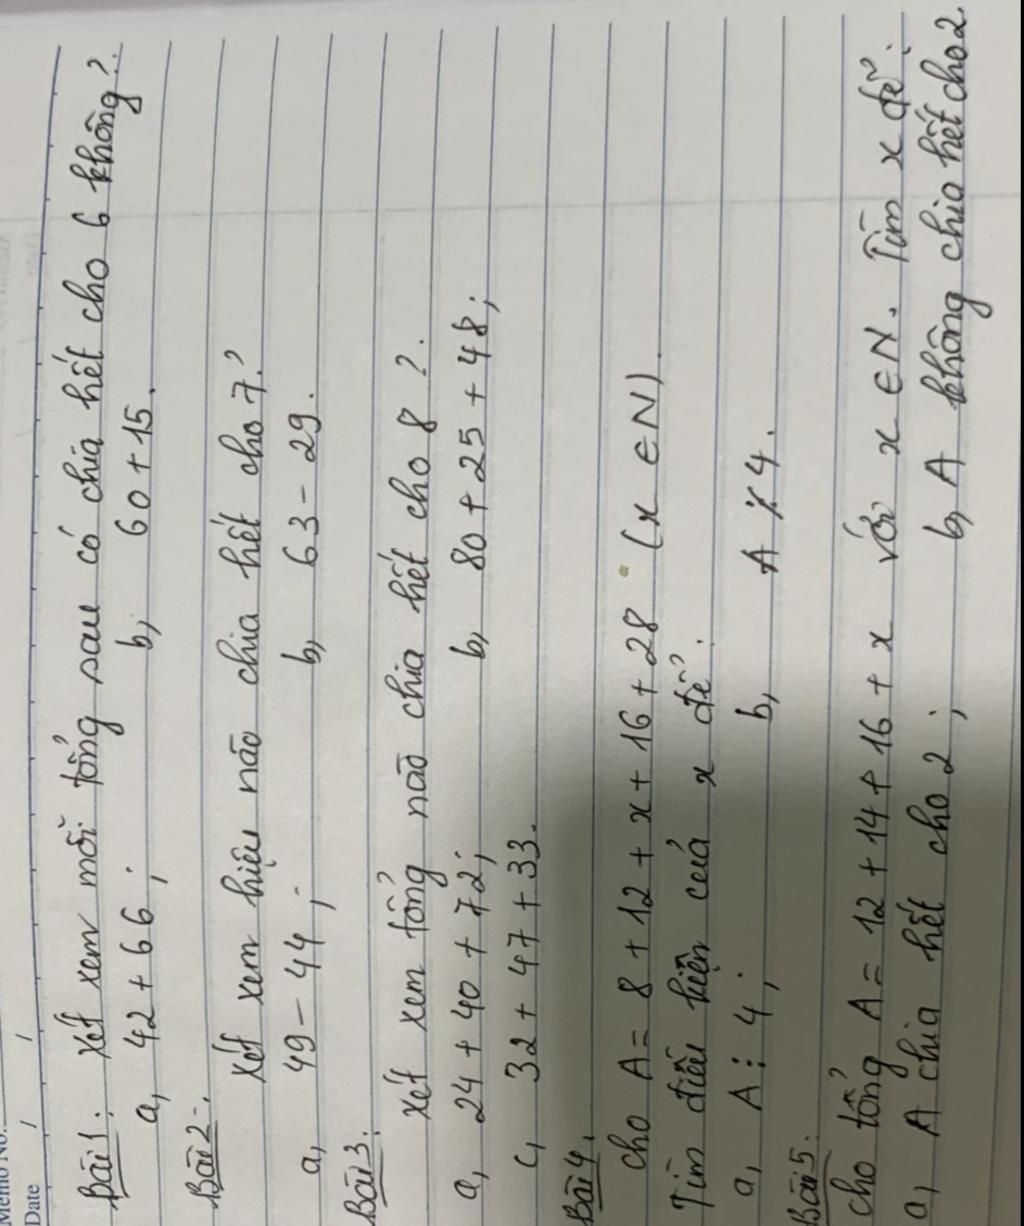 Memo No.
Date / /
Bài 1: Xét xem mỗi tổng sau có chia hết cho 6 không?
a, 42 + 66 ; b, 60 + 15.
Bài 2:
Xét xem hiệu nào chia hết cho 7?
a, 49 - 44 ; b, 63 - 29.
Bài 3.
Xét xem tổng nào chia hết cho 8 ?
a, 24 + 40 + 72 ; b, 80 + 25 + 48 ;
c, 32 + 47 + 33.
Bài 4.
Cho A = 8 + 12 + x + 16 + 28 (x ∈ N)
Tìm điều kiện của x để :
a, A ⋮ 4 ; b, A ⋮̸ 4.
Bài 5.
Cho tổng A = 12 + 14 + 16 + x với x ∈ N. Tìm x để :
a, A chia hết cho 2 ; b, A không chia hết cho 2.